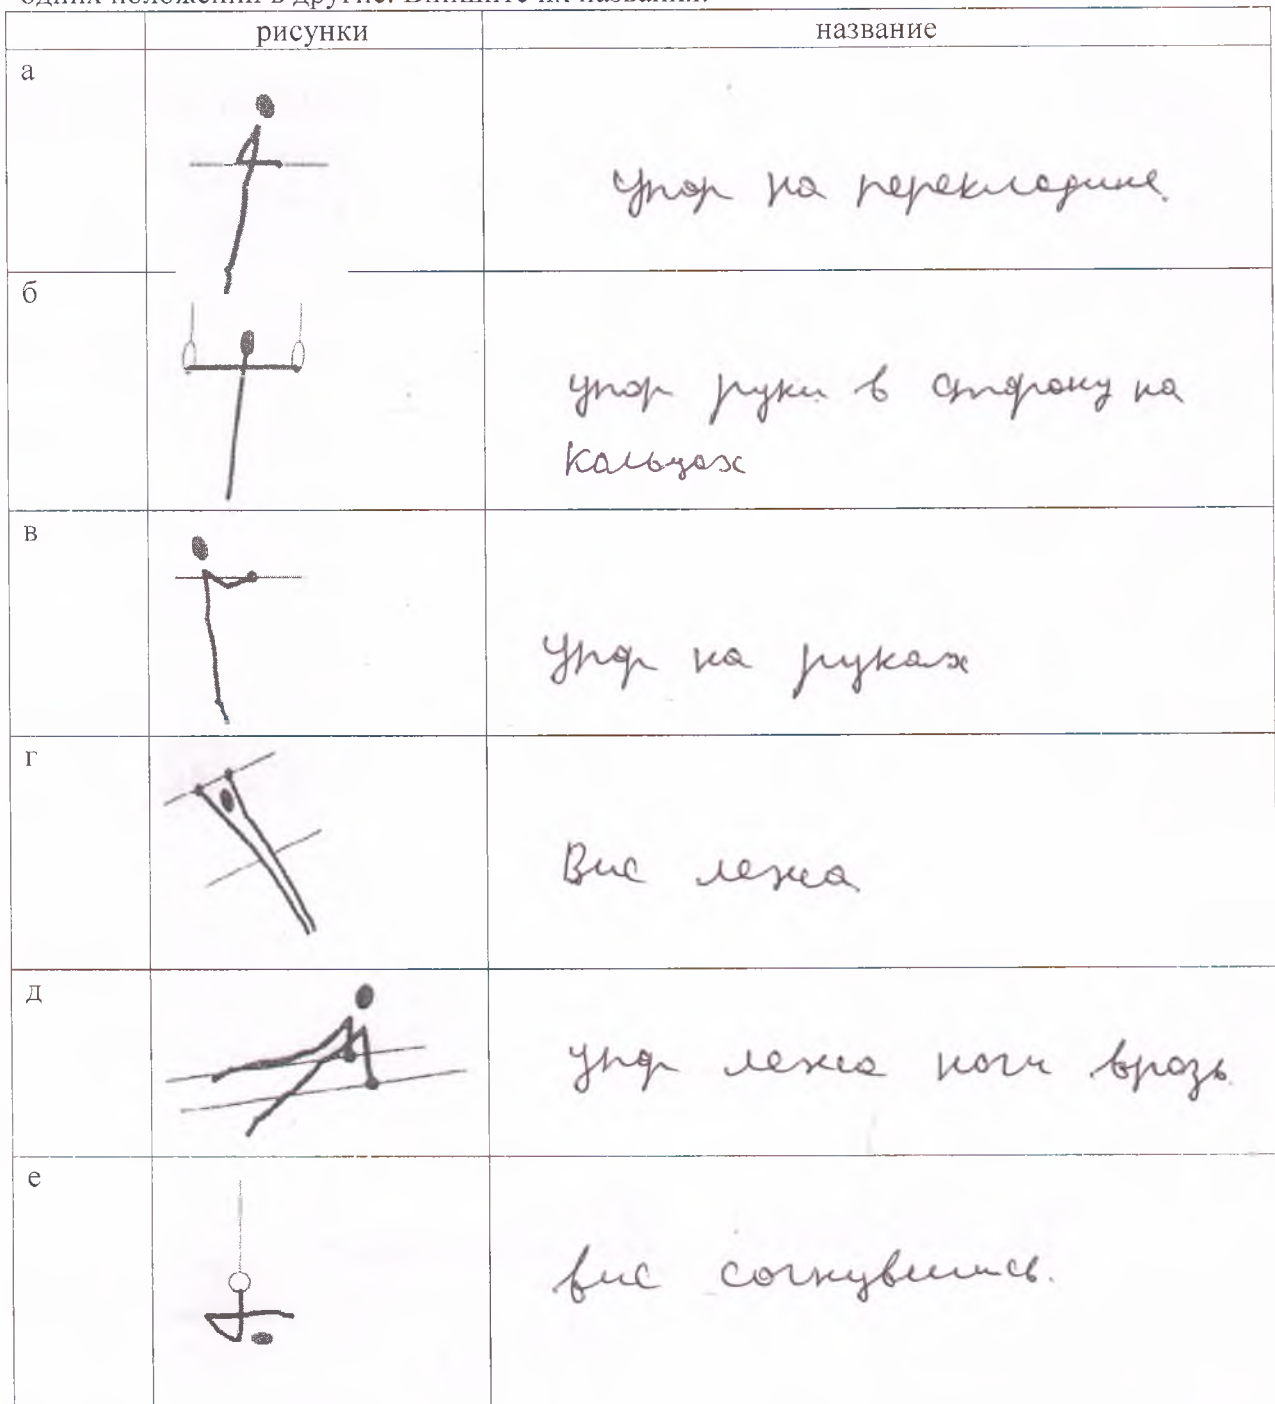 одних положений в другие. Впишите их названия.
рисунки название
а
упор на перекладине.
б
упор руки в сторону на
кольцах
в
упор на руках
г
Вис лежа
д
упор лежа ноги врозь
е
вис согнувшись.